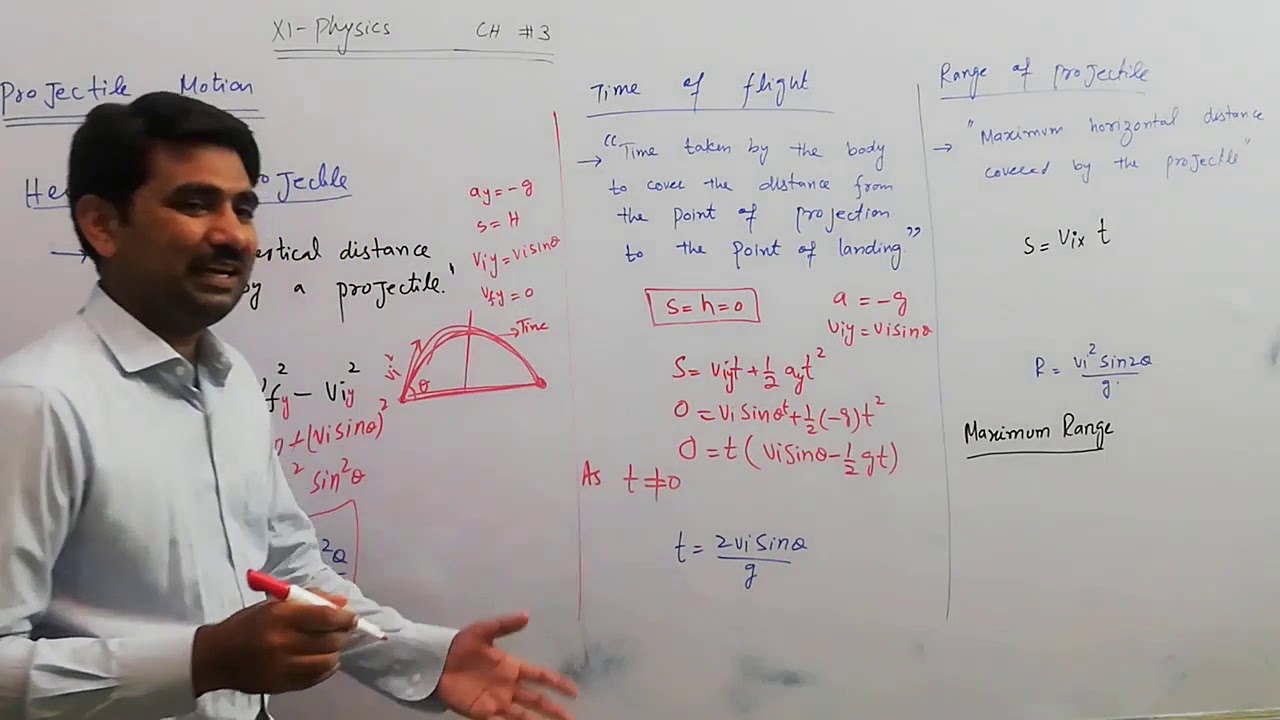 XI-Physics CH #3
Projectile Motion
distance
by a projectile."
fy² - Viy²
+(Visinθ)²
² sin²θ
²θ
ay = -g
s = H
Viy = Visinθ
Vfy = 0
Time
Vi
θ
Time of flight
→ "Time taken by the body
to cover the distance from
the point of projection
to the point of landing."
S = h = 0
a = -g
Viy = Visinθ
S = Viyt + 1/2 ayt²
0 = Vi Sinθt + 1/2 (-g)t²
0 = t (Visinθ - 1/2 gt)
As t ≠ 0
t = 2Vi Sinθ/g
Range of projectile
→ "Maximum horizontal distance
covered by the projectile"
S = Vix t
R = Vi² Sin2θ/g
Maximum Range